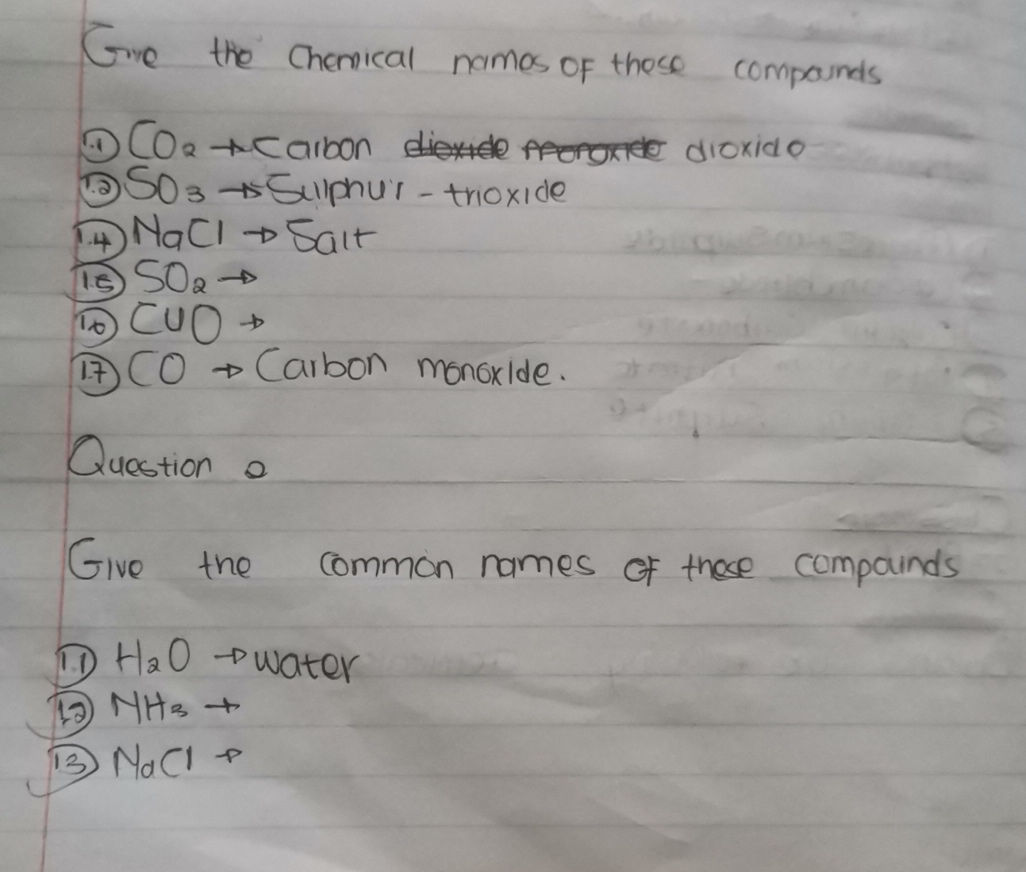 Give the Chemical names of these compounds
1.1 CO2 → Carbon dioxide monoxide dioxide
1.2 SO3 → Sulphur - trioxide
1.4 NaCl → Salt
1.5 SO2 →
1.6 CUO →
1.7 CO → Carbon monoxide.
Question 2
Give the common names of these compounds
1.1 H2O → water
1.2 NH3 →
1.3 NaCl →